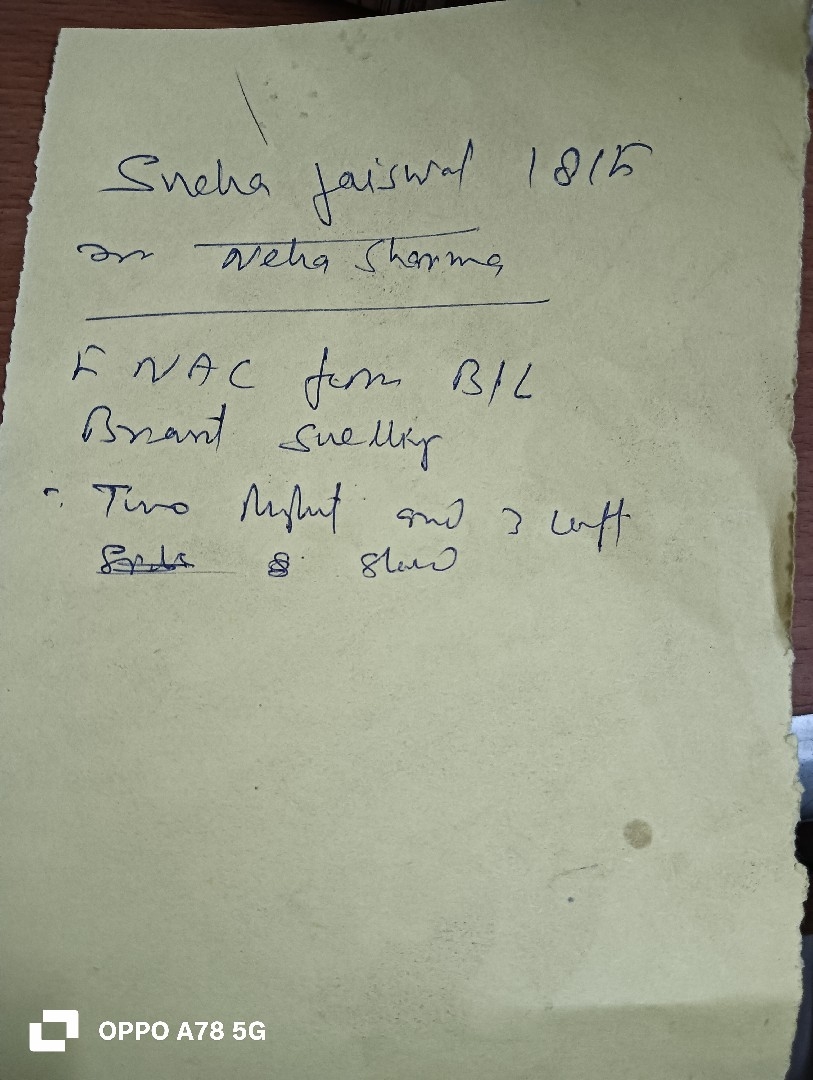 Sneha Jaiswal 18/F
Dr Neha Sharma
FNAC from B/L
Breast Swelling
Two Right and 3 Left
Slide
OPPO A78 5G